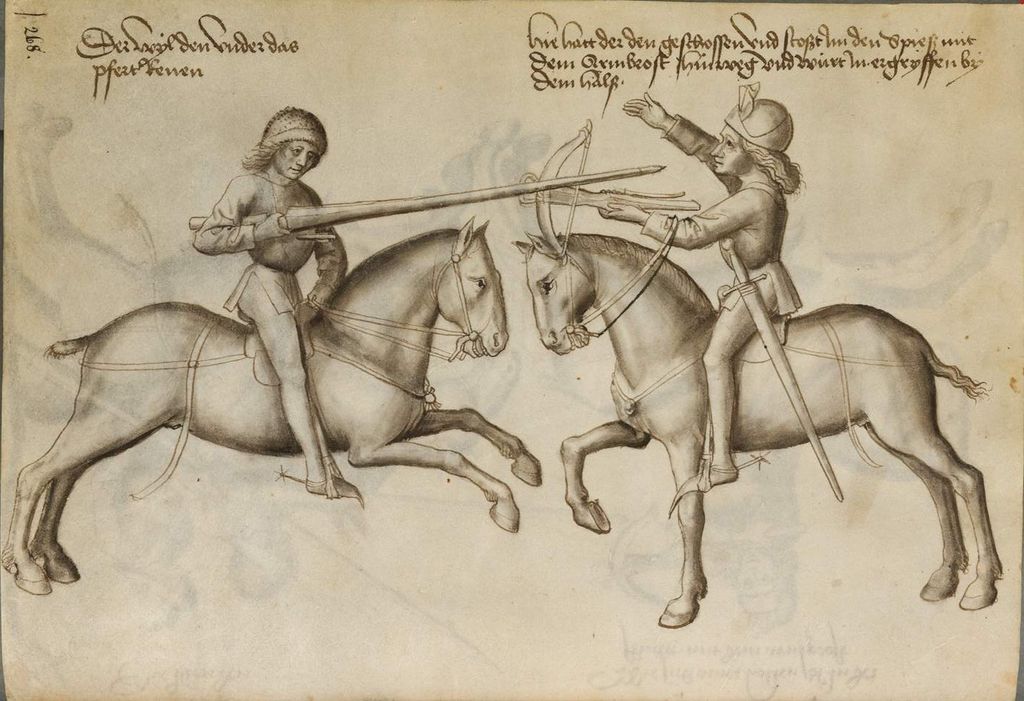 268.
Der wyl den vnder das
pfert Renen
hie hatt der den geschossen vnd stost Im den Spies mit
dem Armbrost hinweg vnd würt In ergryffen by
dem hals.